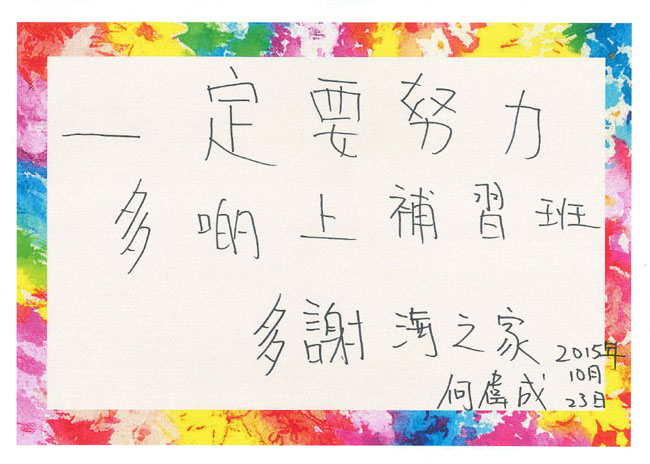 一定要努力
多啲上補習班
多謝海之家
何偉成
2015年
10月
23日